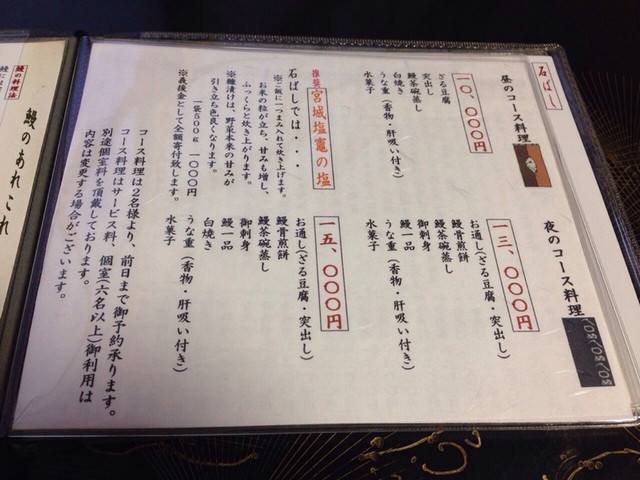 石ばし
昼のコース料理
一〇、〇〇〇円
ざる豆腐
突出し
鰻茶碗蒸し
白焼き
うな重(香物・肝吸い付き)
水菓子
夜のコース料理
一三、〇〇〇円
お通し(ざる豆腐・突出し)
鰻骨煎餅
鰻茶碗蒸し
御刺身
鰻一品
うな重(香物・肝吸い付き)
水菓子
一五、〇〇〇円
お通し(ざる豆腐・突出し)
鰻骨煎餅
鰻茶碗蒸し
御刺身
鰻一品
白焼き
うな重(香物・肝吸い付き)
水菓子
推奨 宮城塩竈の塩
石ばしでは・・・
※ご飯に一つまみ入れて炊き上げます。
お米の粒が立ち、甘みも増し、
ふっくらと炊き上がります。
※糠漬けは、野菜本来の甘みが
引き立ち色良くなります。
一袋500g 一〇〇〇円
※義援金として全額寄付致します。
コース料理は2名様より、前日まで御予約承ります。
コース料理はサービス料、個室(六名以上)御利用は
別途個室料を頂戴しております。
内容は変更する場合がございます。
鰻のあれこれ
鰻の料理法